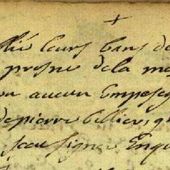 +
lié leurs bans de
prosne de la me
ou aucun Empeseg
de pierre tellier, q
sceu signe Enqu